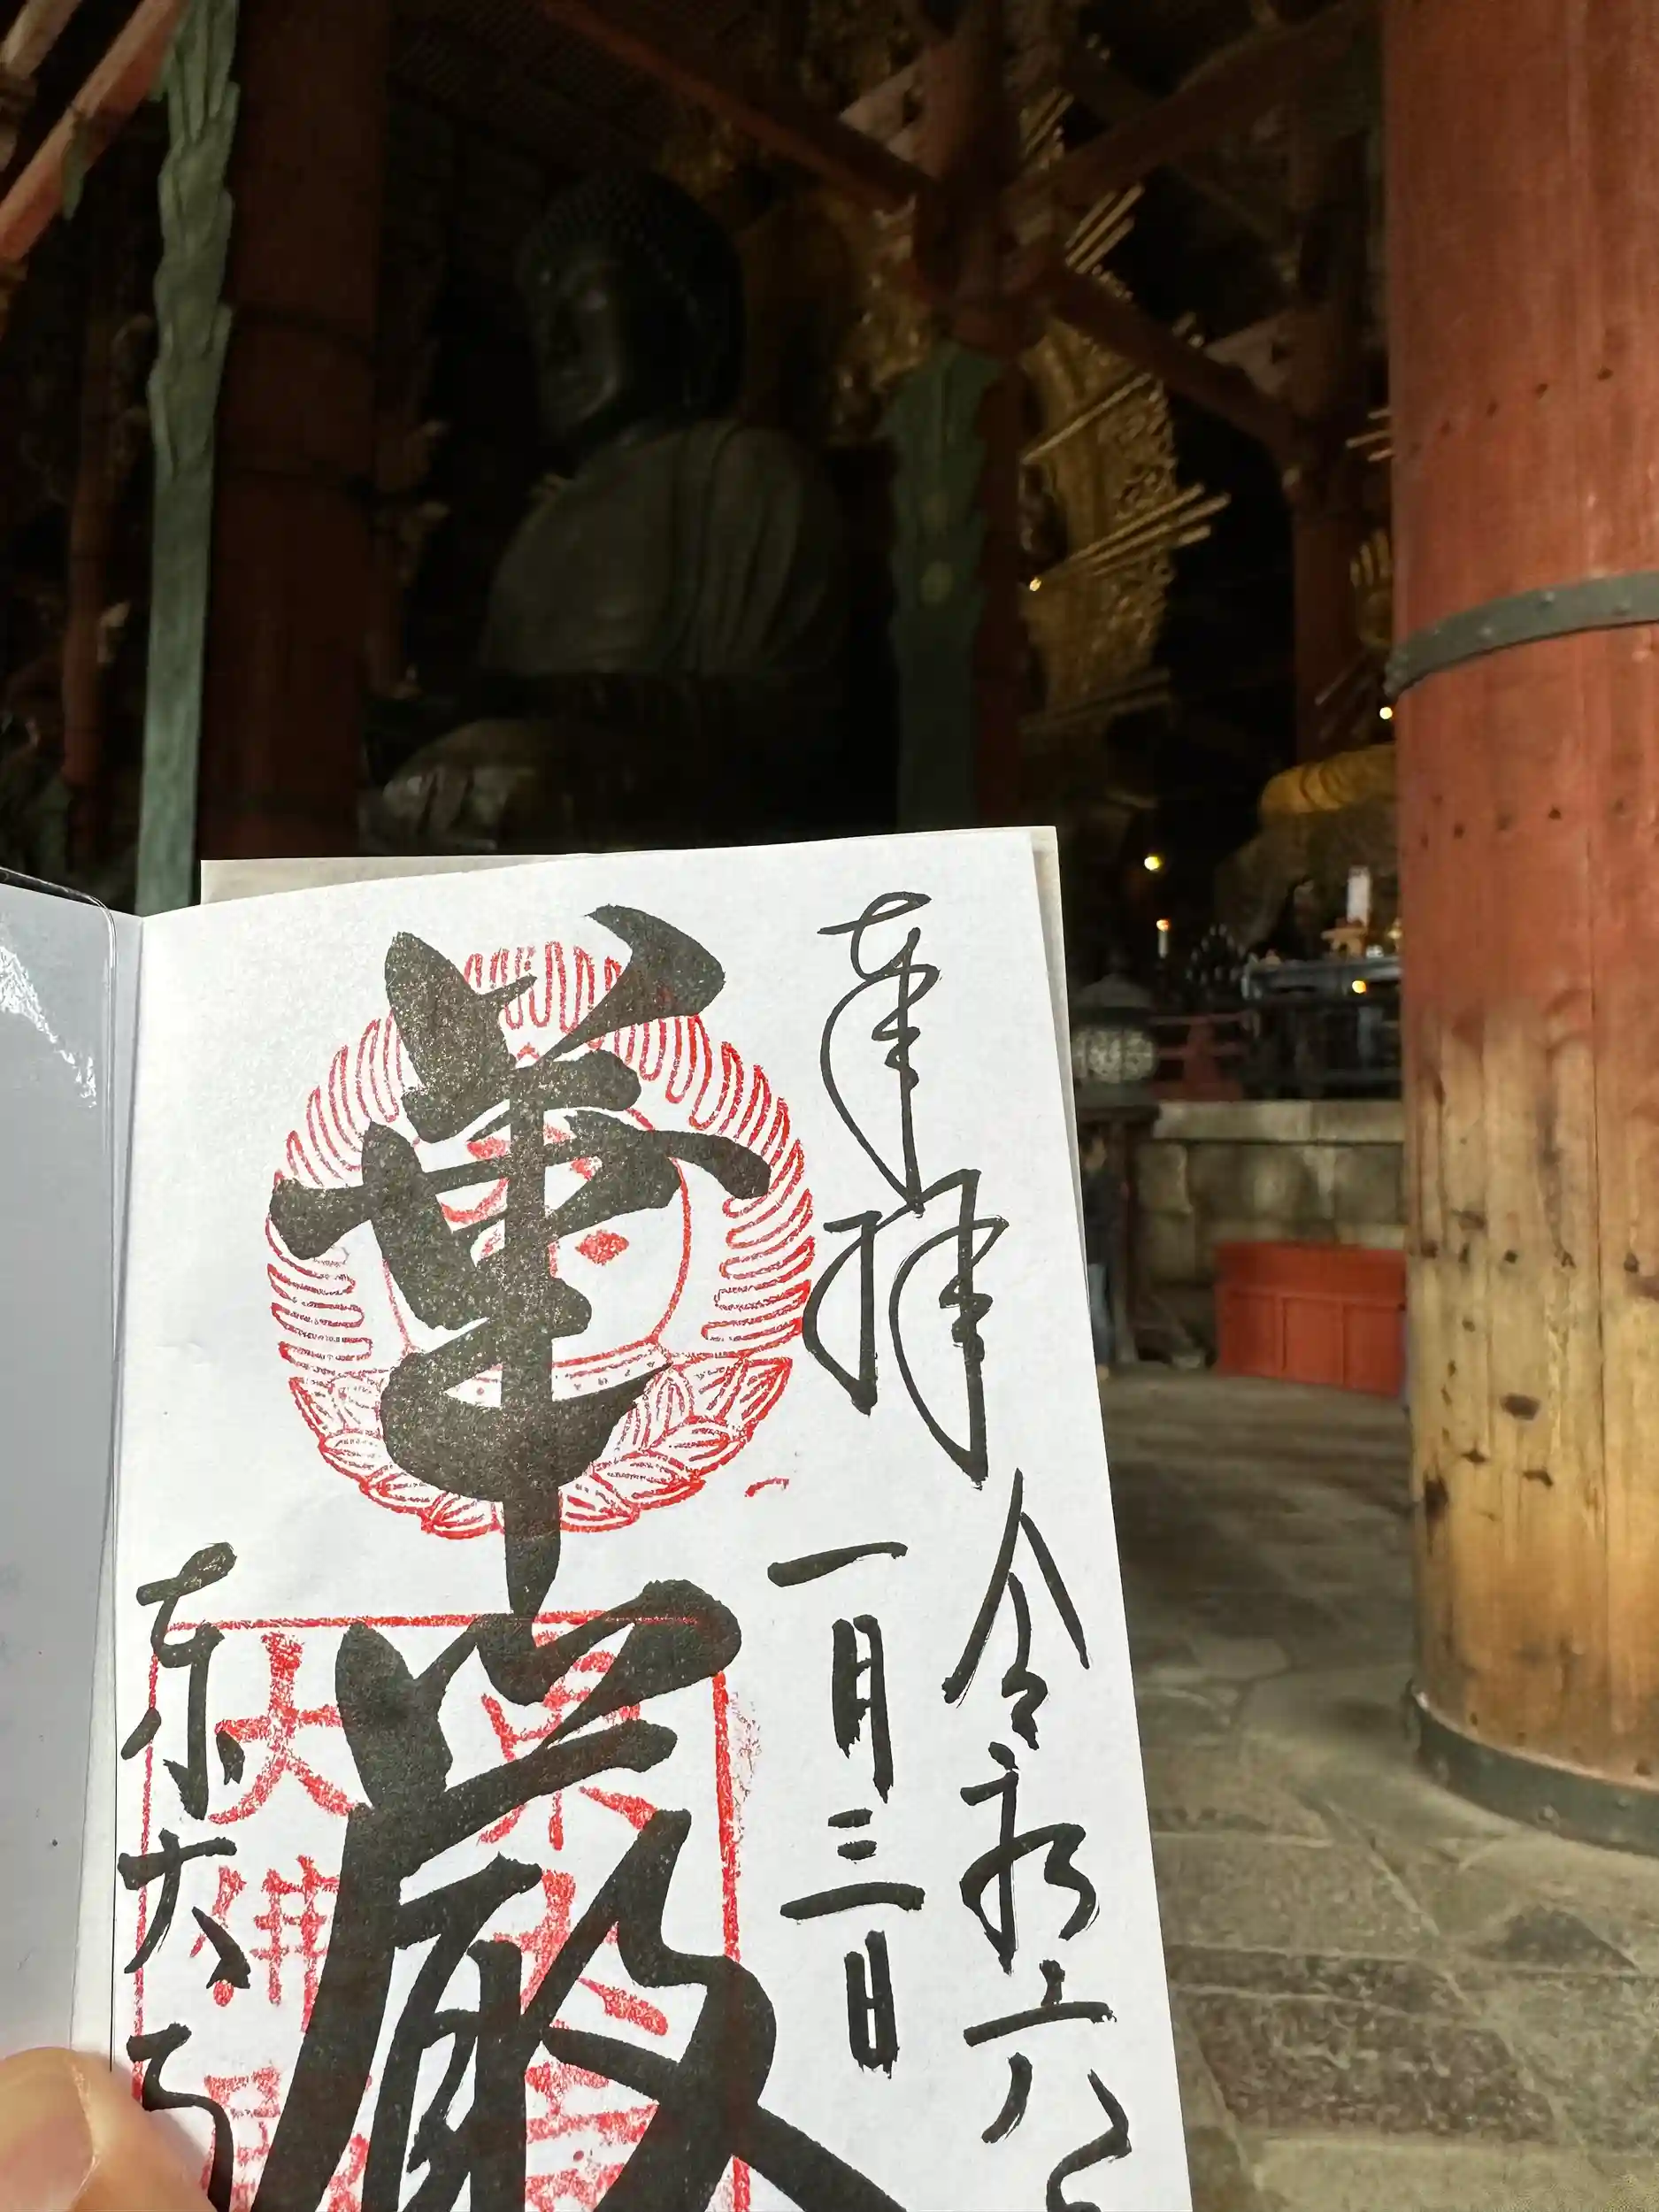 奉拝
令和六
一月三日
華厳
東大寺